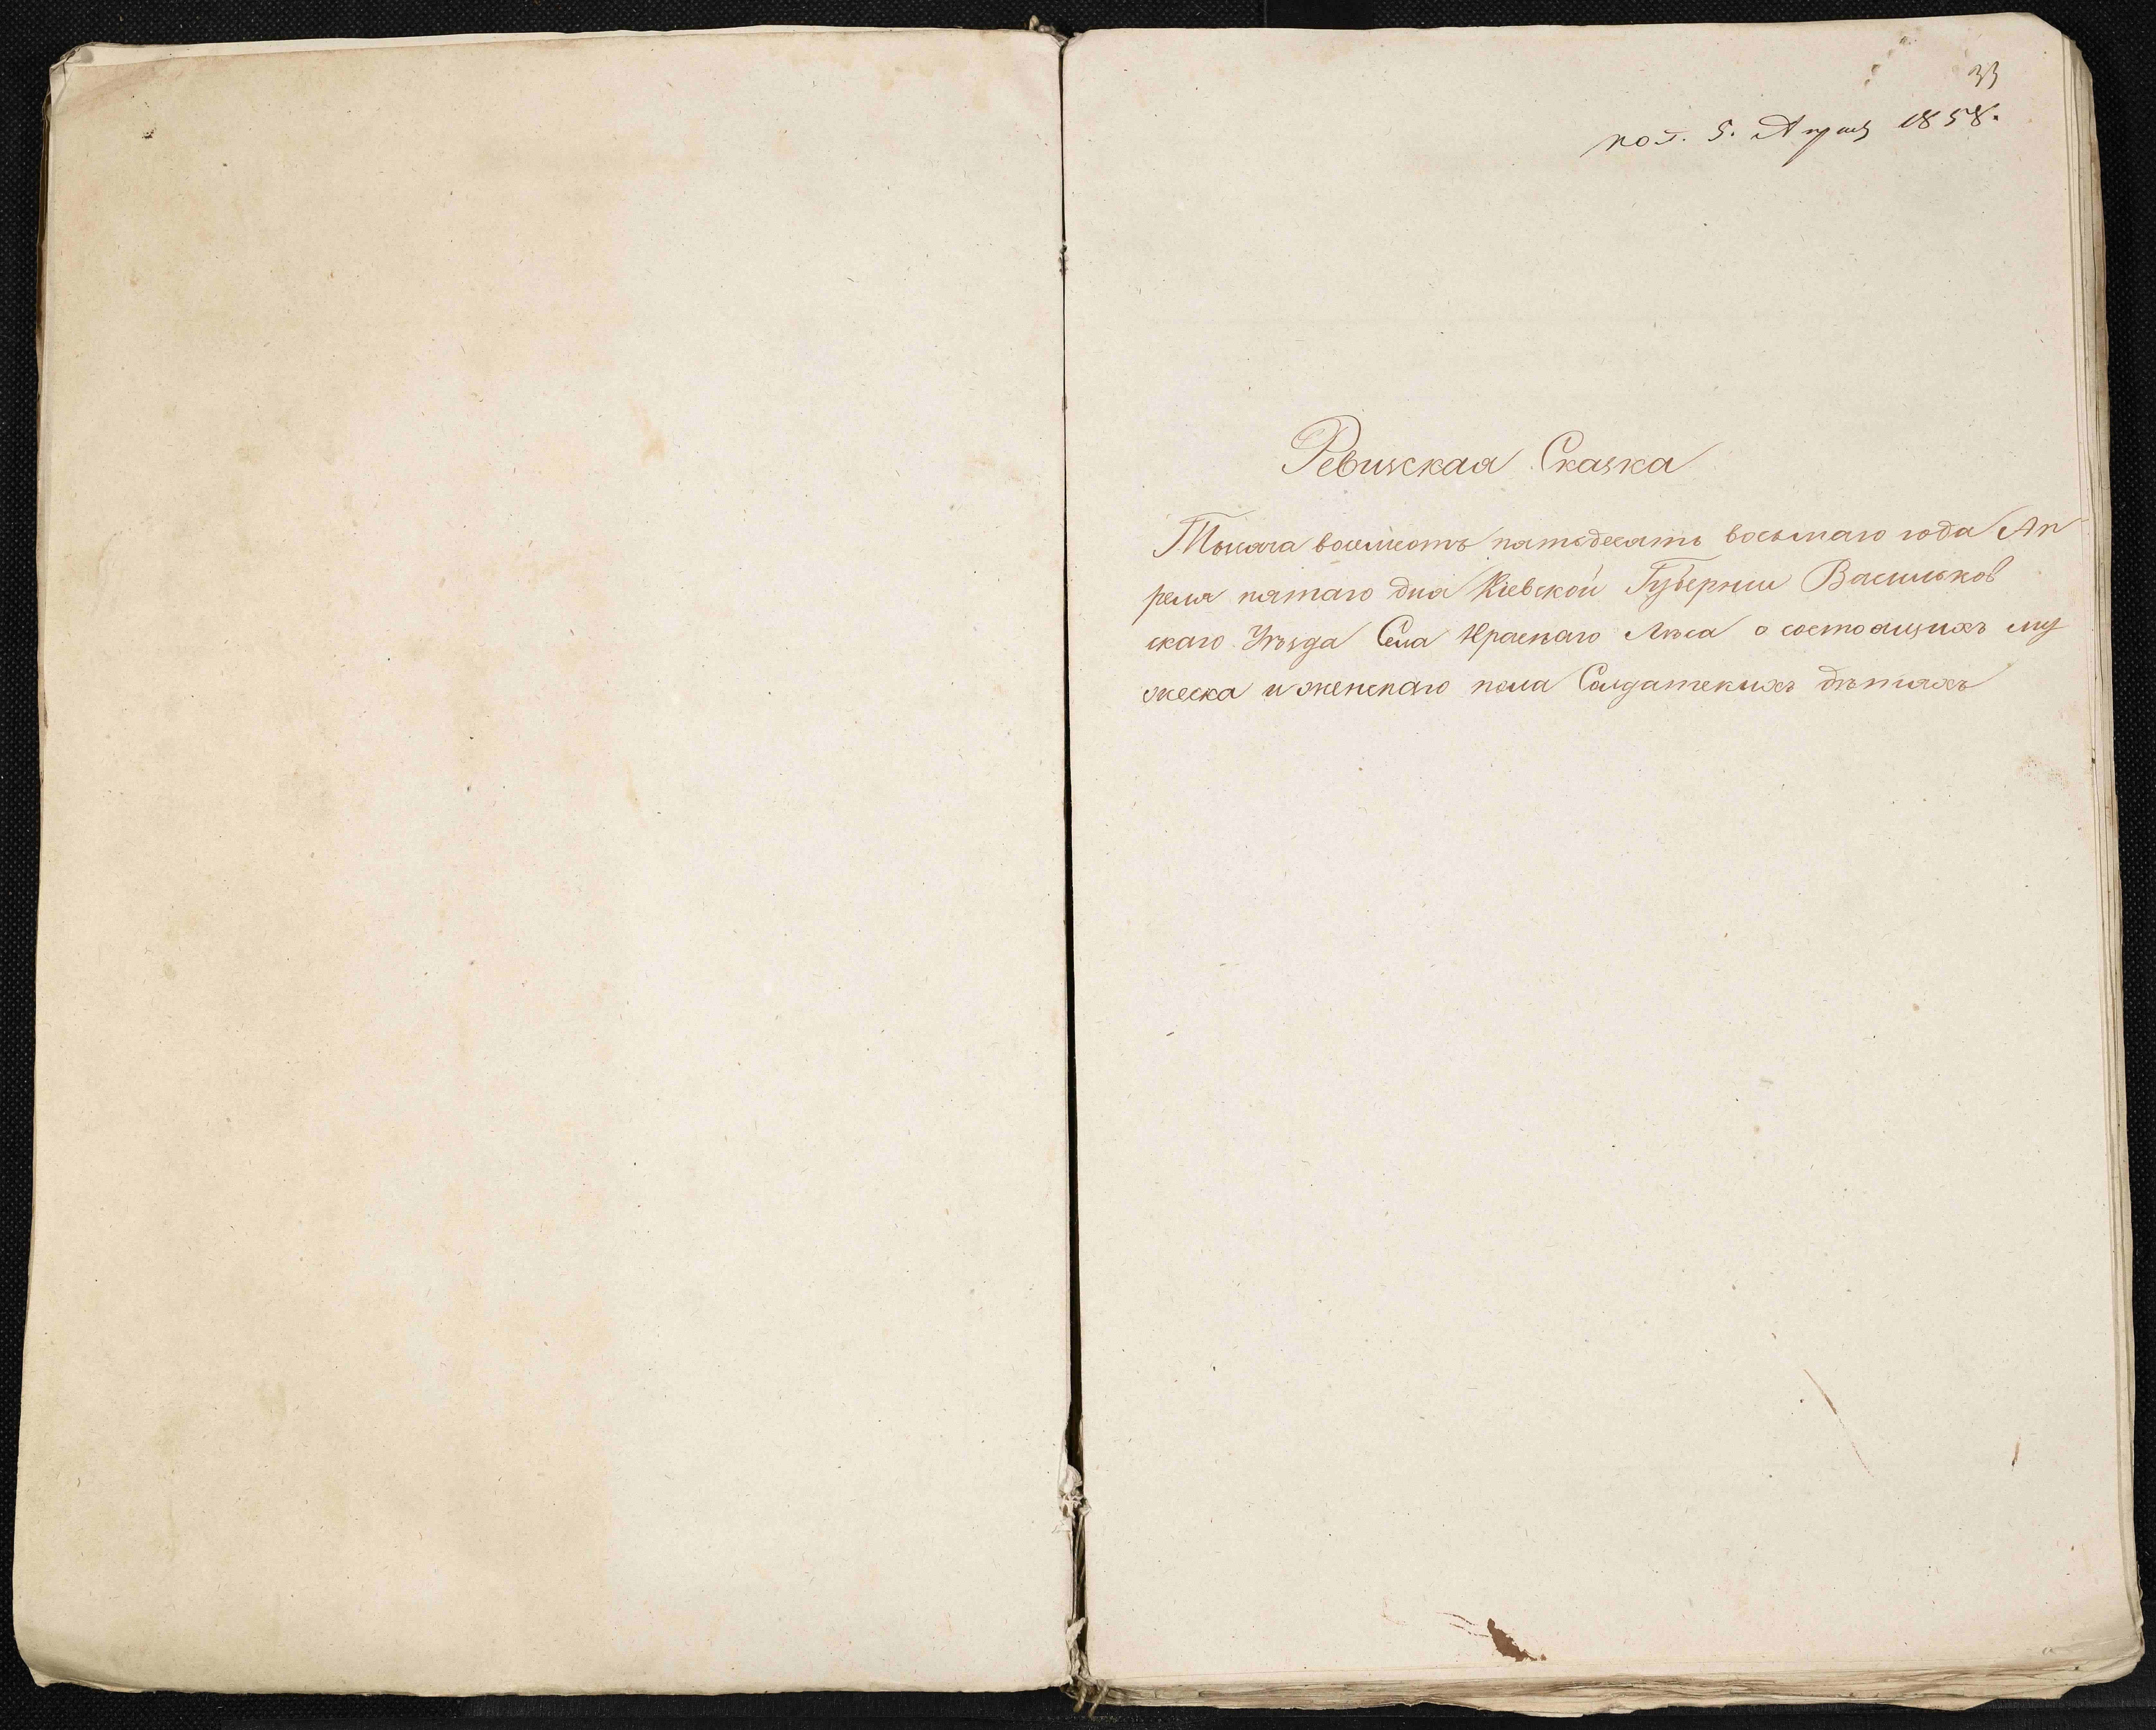 33
пол. 5. Апреля 1858.
Ревизская Сказка
Тысяча восемсотъ пятьдесятъ восьмаго года Ап
реля пятаго дня Кіевской Губерніи Васильков
скаго Уѣзда Села Краснаго Лѣса о состоящихъ му
жеска и женскаго пола Солдатскихъ дѣтяхъ